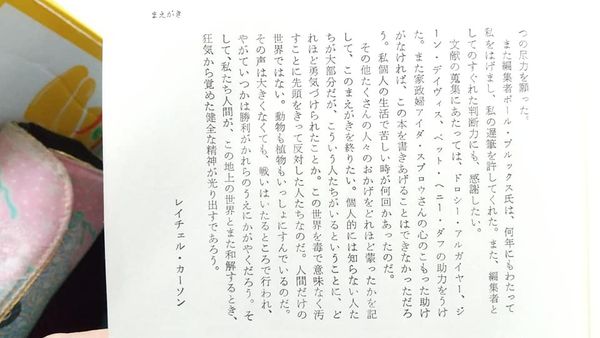 つの尽力を願った。
また編集者ポール・ブルックス氏は、何年にもわたって
私をはげまし、私の遅筆を許してくれた。また、編集者と
してのすぐれた判断力にも、感謝したい。
文献の蒐集にあたっては、ドロシー・アルガイヤー、ジ
ーン・デイヴィス、ベット・ヘニー・ダフの助力をうけ
た。また家政婦アイダ・スプロウさんの心のこもった助け
がなければ、この本を書きあげることはできなかっただろ
う。私個人の生活で苦しい時が何回かあったのだ。
その他たくさんの人々のおかげをどれほど蒙ったかを記
して、このまえがきを終りたい。個人的には知らない人た
ちが大部分だが、こういう人たちがいるということに、ど
れほど勇気づけられたことか。この世界を毒で意味なく汚
すことに先頭をきって反対した人たちなのだ。人間だけの
世界ではない。動物も植物もいっしょにすんでいるのだ。
その声は大きくなくても、戦いはいたるところで行われ、
やがていつかは勝利がかれらのうえにかがやくだろう。そ
して、私たち人間が、この地上の世界とまた和解するとき、
狂気から覚めた健全な精神が光り出すであろう。
レイチェル・カーソン
まえがき